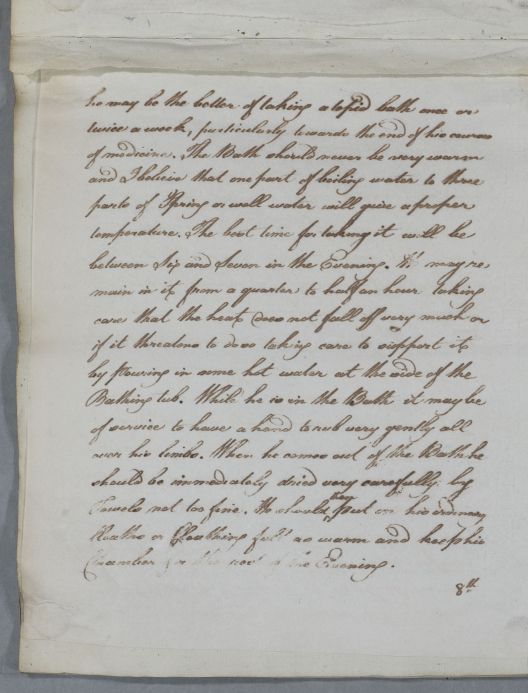 he may be the better of taking a tepid bath once or
twice a week, particularly towards the end of his course
of medicine. The Bath should never be very warm
and I believe that one part of boiling water to three
parts of Spring or well water will give a proper
temperature. The best time for taking it will be
between Six and Seven in the Evening. He may re
main in it from a quarter to half an hour taking
care that the heat does not fall off very much or
if it threatens to do so taking care to support it
by pouring in some hot water at the side of the
Bathing tub. While he is in the Bath it may be
of service to have a hand to rub very gently all
over his limbs. When he comes out of the Bath he
should be immediately dried very carefully by
Towels not too fine. He should then put on his ordinary
or Cloathing full as warm and keep his
Chamber for the rest of the Evening.
8th